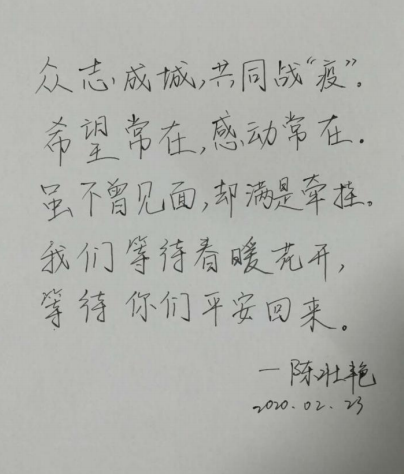 众志成城,共同战“疫”。
希望常在,感动常在.
虽不曾见面,却满是牵挂。
我们等待春暖花开,
等待你们平安回来。
—陈壮艳
2020.02.23